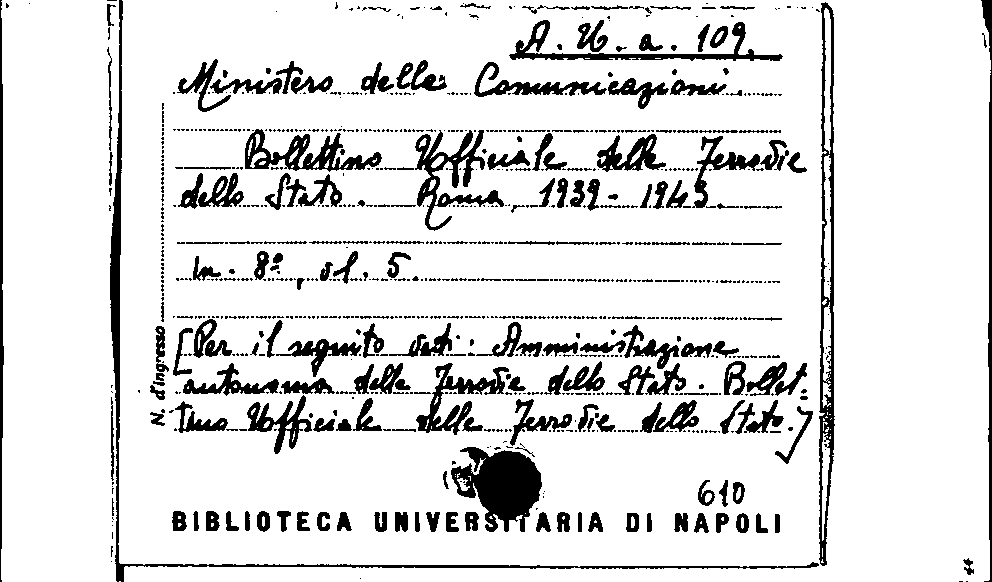 A. U. a. 109.
Ministero delle Comunicazioni.
Bollettino Ufficiale delle Ferrovie
dello Stato. Roma, 1939 - 1943.
in. 8º, vl. 5.
N. d'Ingresso
[Per il seguito vedi: Amministrazione
autonoma delle Ferrovie dello Stato. Bollet=
tino Ufficiale delle Ferrovie dello Stato.]
610
BIBLIOTECA UNIVERSITARIA DI NAPOLI